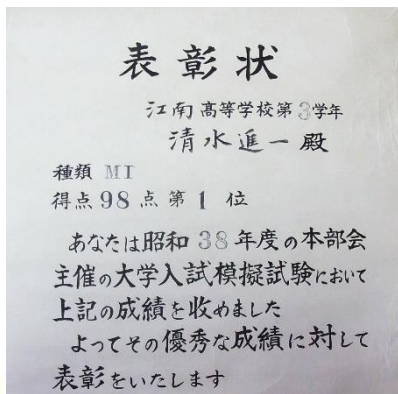 表彰状
江南高等学校第3学年
清水進一殿
種類 MI
得点98点第1位
あなたは昭和38年度の本部会
主催の大学入試模擬試験において
上記の成績を収めました
よってその優秀な成績に対して
表彰をいたします